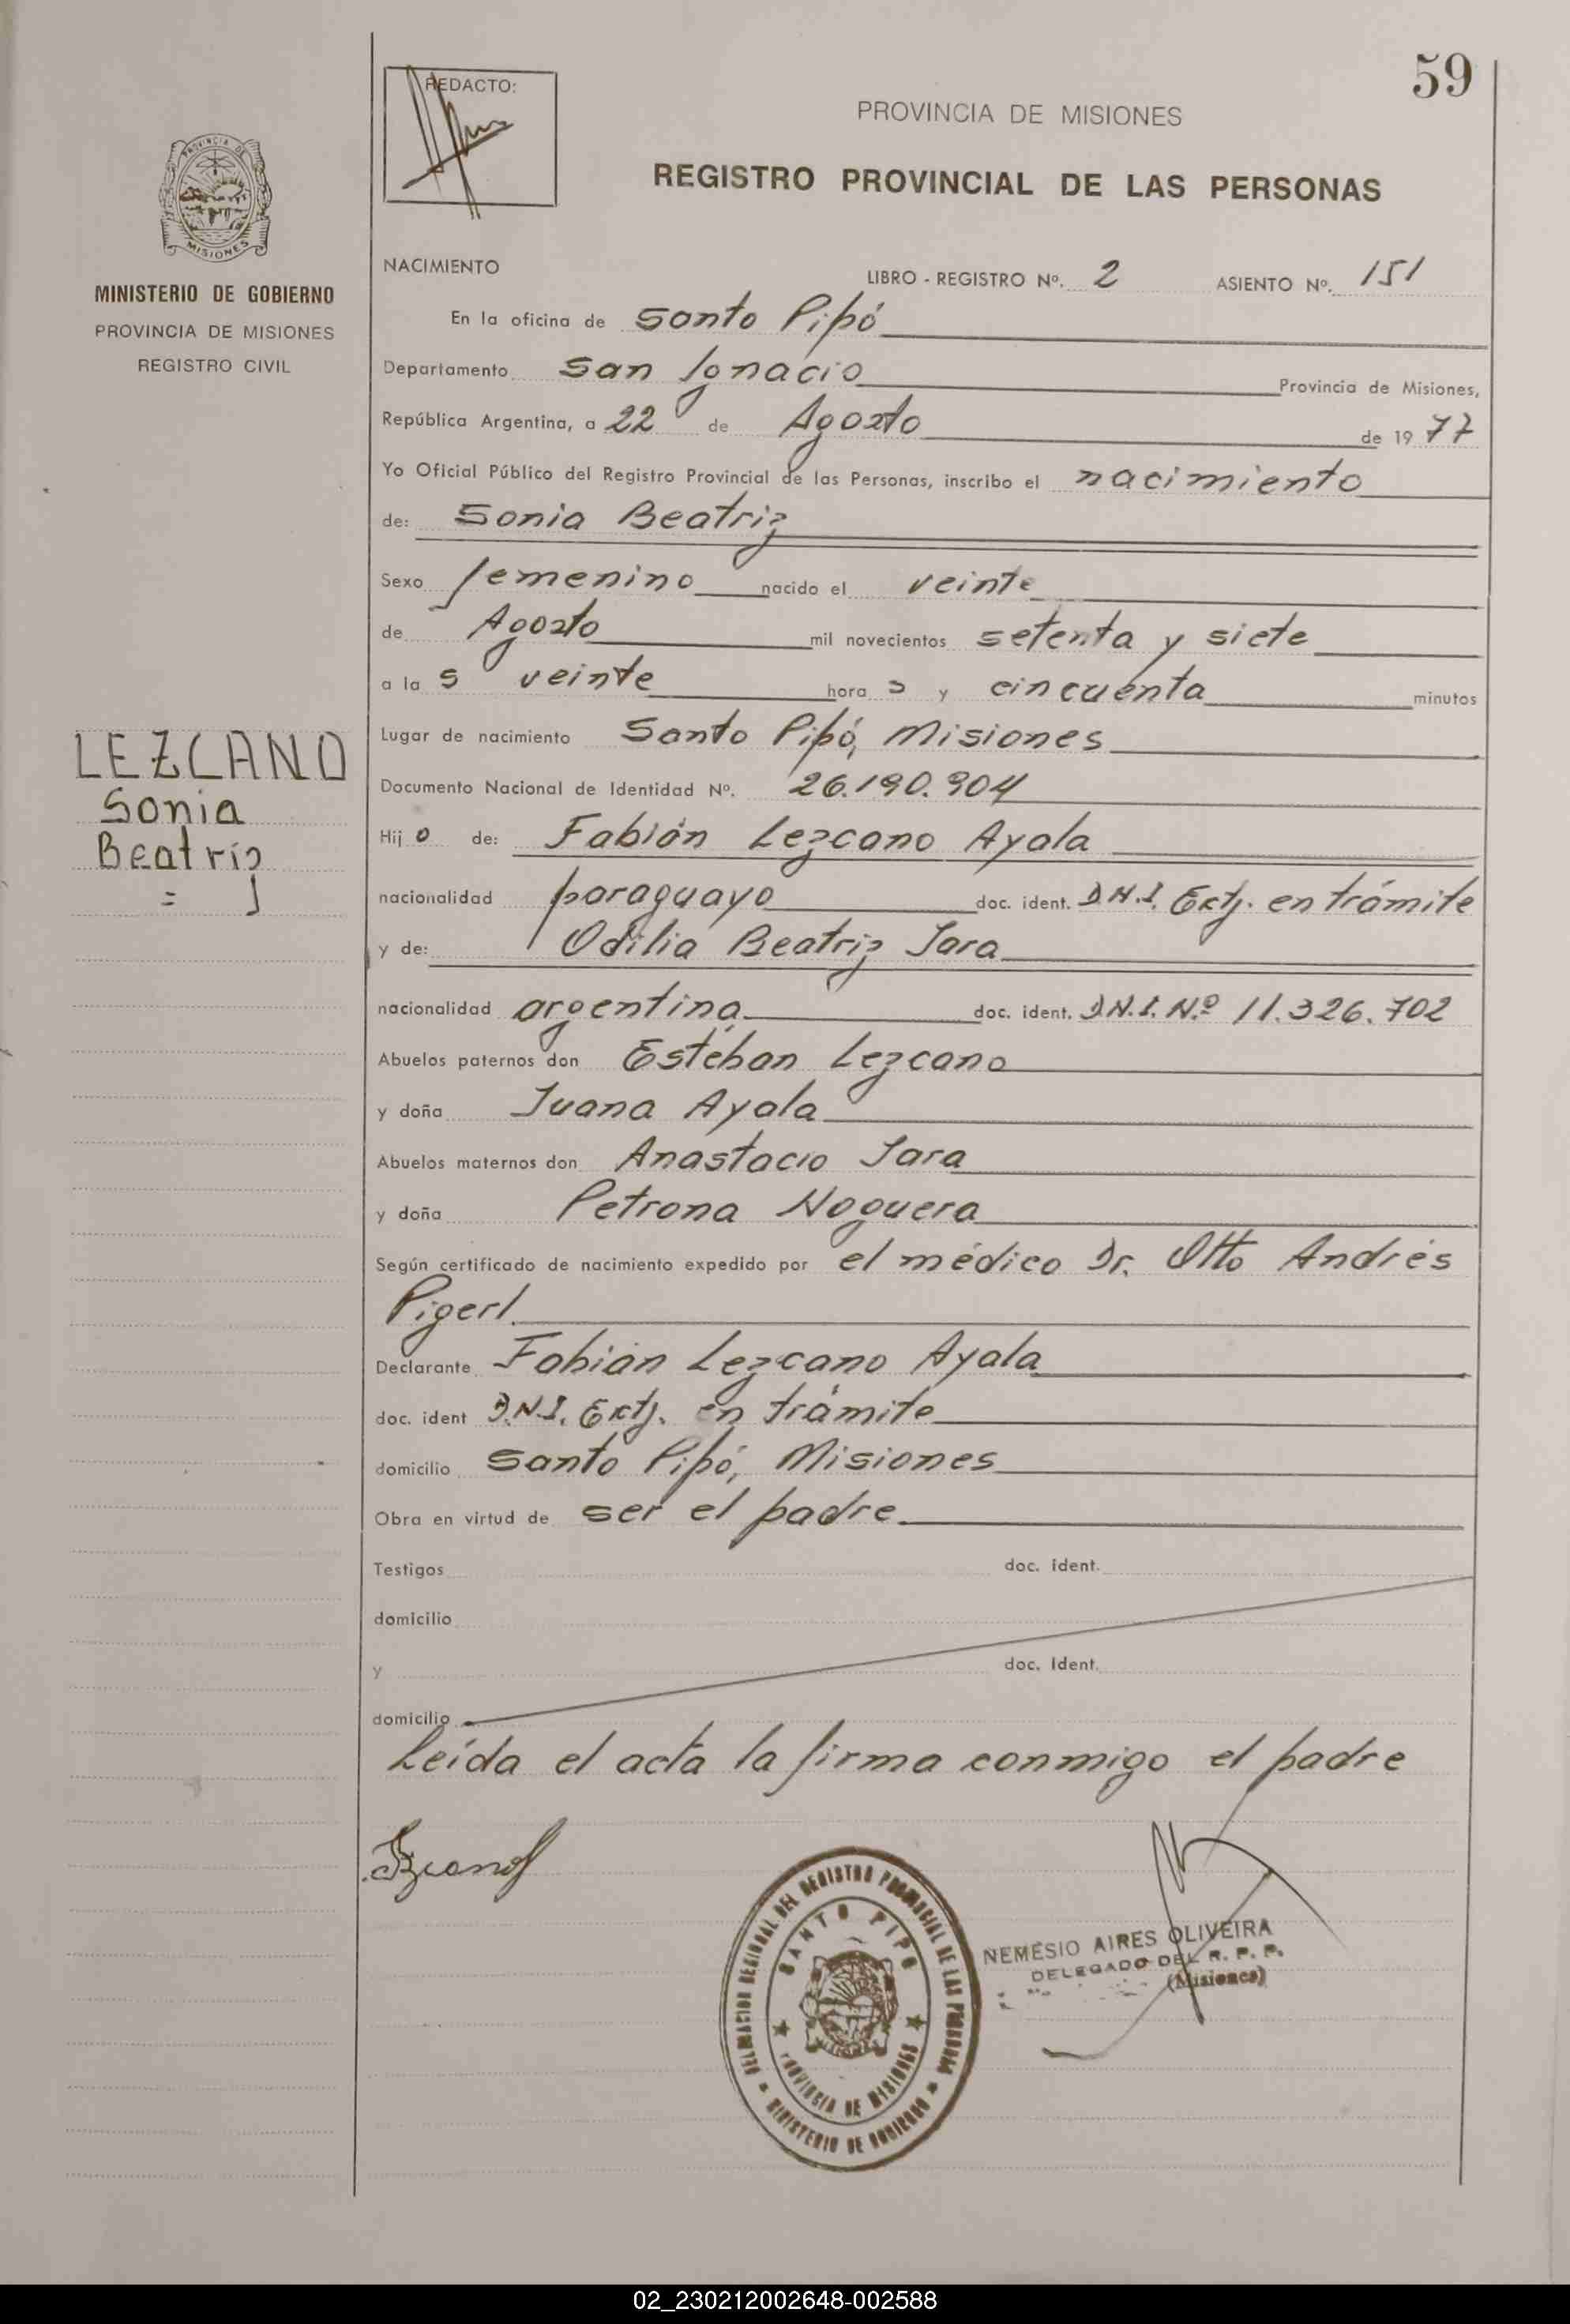 59
REDACTO:
PROVINCIA DE MISIONES
REGISTRO PROVINCIAL DE LAS PERSONAS
PROVINCIA DE
MISIONES
MINISTERIO DE GOBIERNO
PROVINCIA DE MISIONES
REGISTRO CIVIL
NACIMIENTO
LIBRO - REGISTRO Nº. 2 ASIENTO Nº. 151
En la oficina de Santo Pipó
Departamento San Ignacio Provincia de Misiones,
República Argentina, a 22 de Agosto de 19 77
Yo Oficial Público del Registro Provincial de las Personas, inscribo el nacimiento
de: Sonia Beatriz
Sexo femenino nacido el veinte
de Agosto mil novecientos setenta y siete
a la s veinte hora s y cincuenta minutos
Lugar de nacimiento Santo Pipó, Misiones
Documento Nacional de Identidad Nº. 26.190.904
LEZCANO
Sonia
Beatriz
Hij o de: Fabián Lezcano Ayala
nacionalidad paraguayo doc. ident. D.N.I. Extj. en trámite
y de: Odilia Beatriz Jara
nacionalidad argentina doc. ident. D.N.I. Nº 11.326.702
Abuelos paternos don Estéban Lezcano
y doña Juana Ayala
Abuelos maternos don Anastacio Jara
y doña Petrona Noguera
Según certificado de nacimiento expedido por el médico Dr. Otto Andrés
Pigerl.
Declarante Fabián Lezcano Ayala
doc. ident D.N.I. Extj. en trámite
domicilio Santo Pipó, Misiones
Obra en virtud de ser el padre
Testigos doc. ident.
domicilio
y doc. Ident.
domicilio
Leída el acta la firma conmigo el padre
DELEGACION REGIONAL DEL REGISTRO PROVINCIAL DE LAS PERSONAS
SANTO PIPO
PROVINCIA DE MISIONES
MINISTERIO DE GOBIERNO
NEMESIO AIRES OLIVEIRA
DELEGADO DEL R. P. P.
(Misiones)
02_230212002648-002588